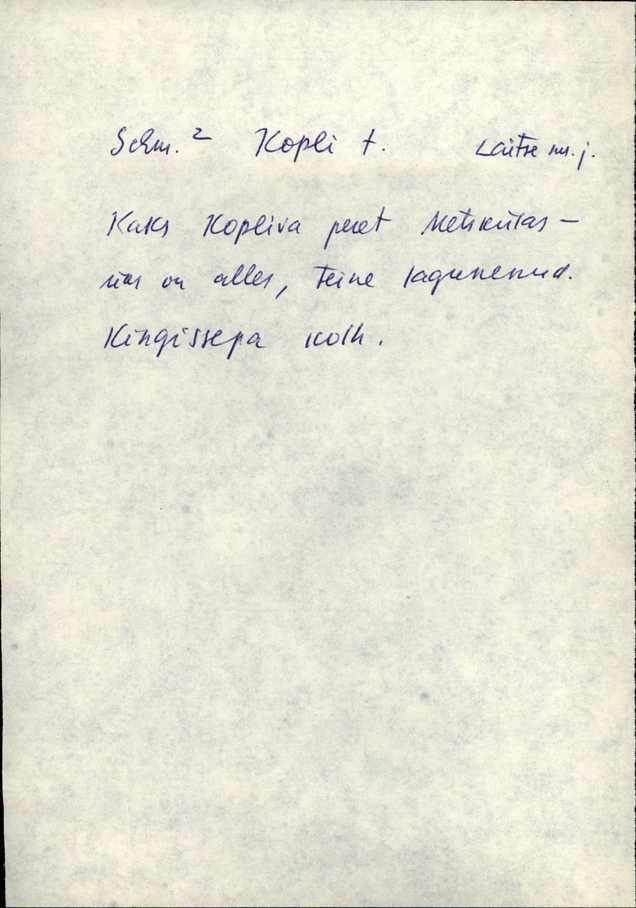 Schm.² Kopli t. Laitse m. j.
Kaks Kopliva peret Metsküllas –
üks on alles, teine lagunenud.
Kingissepa kolh.